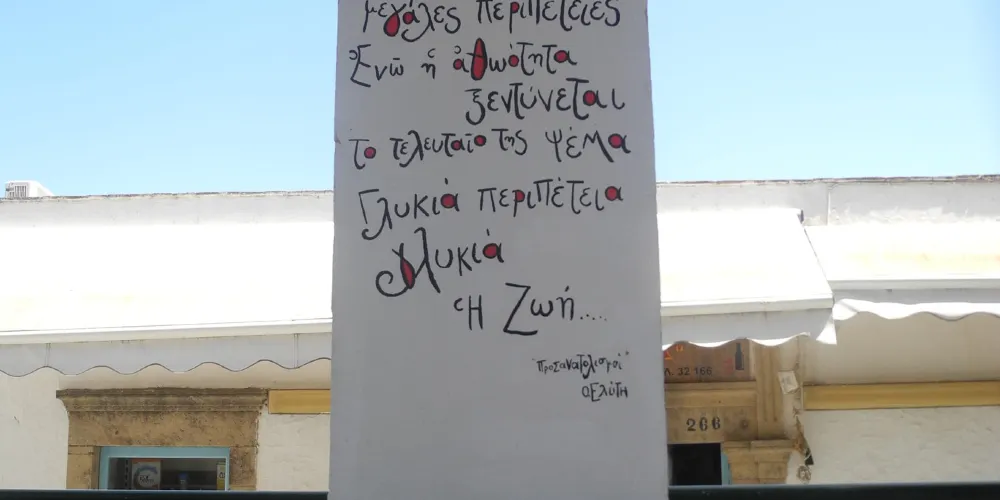 μεγάλες περιπέτειες
Ἐνῶ ἡ ἀθωότητα
ξεντύνεται
το τελευταίο της ψέμα
Γλυκιά περιπέτεια
Γλυκιά
Ἡ Ζωή.....
"Προσανατολισμοί"
Ο Ελύτη
Λ. 32 166
266